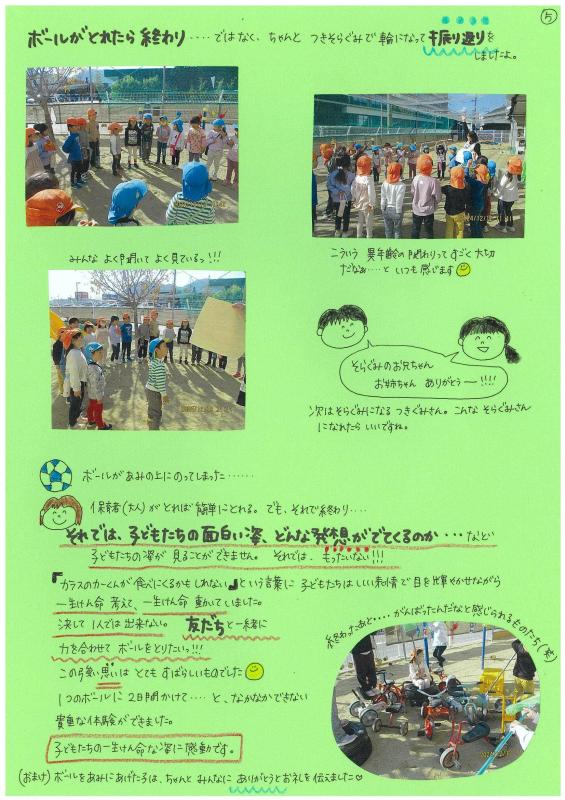 ⑤
ボールがとれたら終わり・・・・ではなく、ちゃんと つきそらぐみで 輪になって振り返りを
しましたよ。
みんな よく聞いて よく見ているっ!!!
こういう 異年齢の関わりってすごく大切
だなぁ・・・・と いつも感じます
そらぐみのお兄ちゃん
お姉ちゃん ありがとうー!!!!
次はそらぐみになる つきぐみさん。こんな そらぐみさん
になれたら いいですね。
ボールがあみの上にのってしまった・・・・・・
保育者(大人)がとれば簡単にとれる。でも、それで終わり・・・・
それでは、子どもたちの面白い姿、どんな発想がでてくるのか・・・などと
子どもたちの姿が 見ることができません。それでは、もったいない!!!
『カラスのカーくんが食べにくるかもしれない』という言葉に 子どもたちはいい表情で目を輝かせながら
一生けん命 考えて、一生けん命 動いてしました。
決して 1人では出来ない。友だちと一緒に
力を合わせて ボールをとりたいっ!!!
この強い思いは とても すばらしいものでした
1つのボールに 2日間かけて・・・・と、なかなかできない
貴重な体験ができました。
子どもたちの一生けん命な姿に感動です。
終わったあと・・・・がんばったんだなと感じられるものたち(笑)
(おまけ)ボールをあみにあげた子は、ちゃんと みんなに ありがとうとお礼を伝えました♡